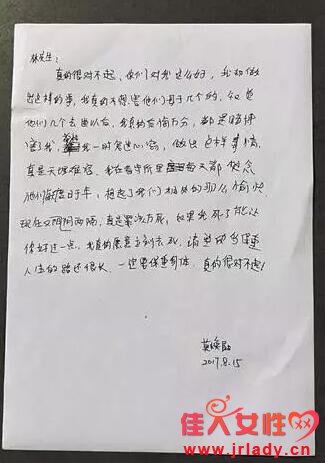 林先生：
真的很对不起，你们对我这么好，我却做
出这样的事，我真的不想害他们母子几个的，知道
他们几个去世以后，我真的后悔万分，都是赌博
害了我，我一时鬼迷心窍，做出这种事情，
真是天理难容，我在看守所里每天都念
他们度日如年，想起了我们相处的那么愉快
现在又阴阳两隔，真是罪该万死，如果我死了能让
你好过一点，我真的愿意立刻去死，请多保重
人生的路还很长，一定要保重身体，真的很对不起！
莫焕晶
2017.8.15
佳人女性
www.jrlady.cn